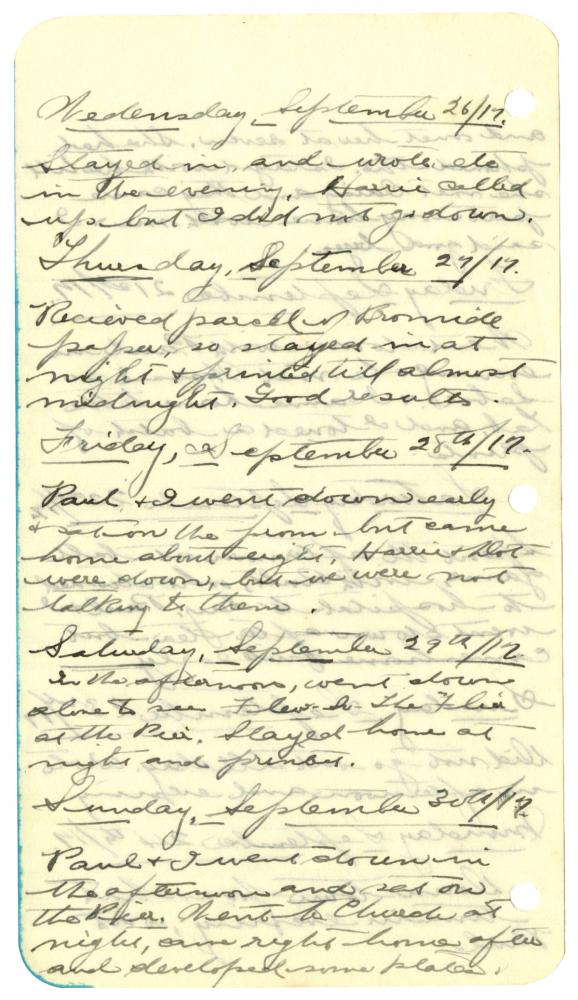 Wedensday, September 26/17.
Stayed in, and wrote, etc
in the evening, Harrie called
up but I did not go down.
Thursday, September 27/17.
Recieved parcel of Bromide
paper, so stayed in at
night & printed till almost
midnight. Good results.
Friday, September 28th/17.
Paul & I went down early
& sat on the prom but came
home about eight, Harrie & Dot
were down, but we were not
talking to them.
Saturday, September 29th/17
In the afternoon, went down
alone to see The
at the Pier. Stayed home at
night and printed.
Sunday, September 30th/17.
Paul & I went down in
the afternoon and sat on
the Pier. Went to Church at
night, came right home after
and developed some plates.